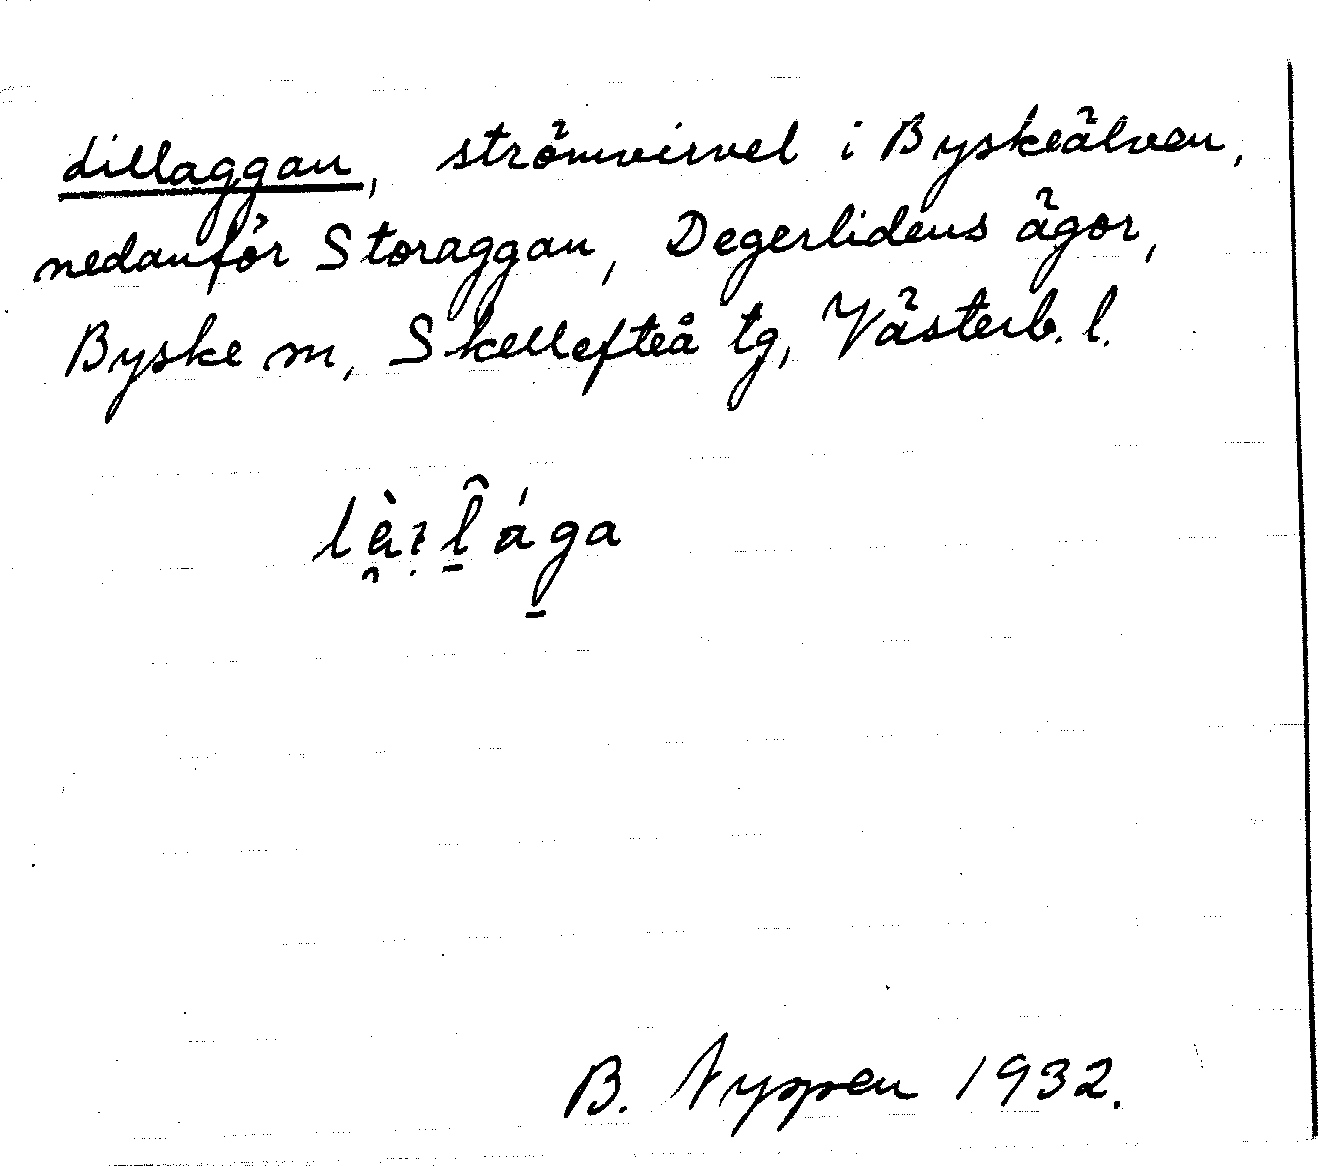 Lillaggan, strömvirvel i Byskeälven,
nedanför Storaggan, Degerlidens ägor,
Byske sn, Skellefteå tg, Västerb. l.
B. Nyppen 1932.